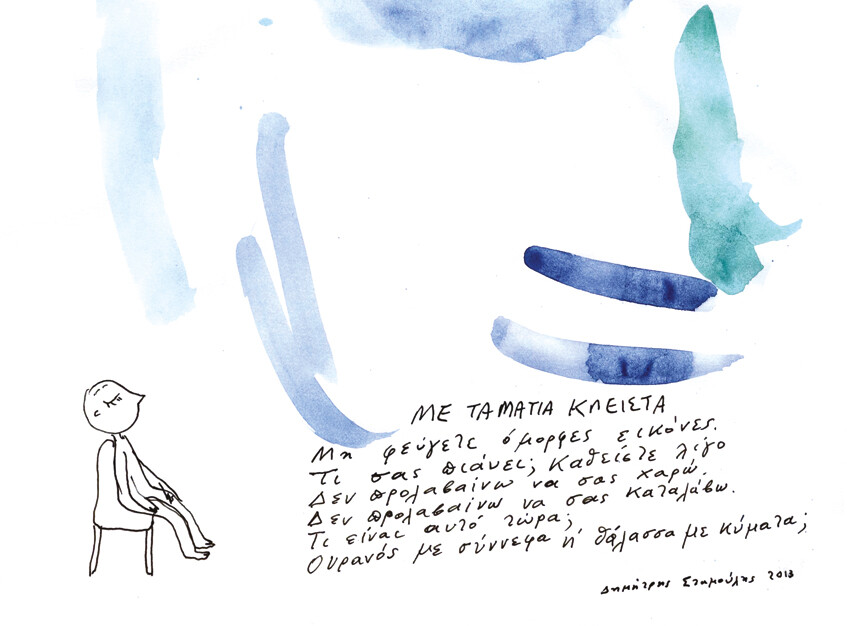 ΜΕ ΤΑ ΜΑΤΙΑ ΚΛΕΙΣΤΑ
Μη φεύγετε όμορφες εικόνες.
Τι σας πιάνει; Καθείστε λίγο
Δεν προλαβαίνω να σας χαρώ.
Δεν προλαβαίνω να σας καταλάβω.
Τι είναι αυτό τώρα;
Ουρανός με σύννεφα ή θάλασσα με κύματα;
Δημήτρης Σταμούλης 2013